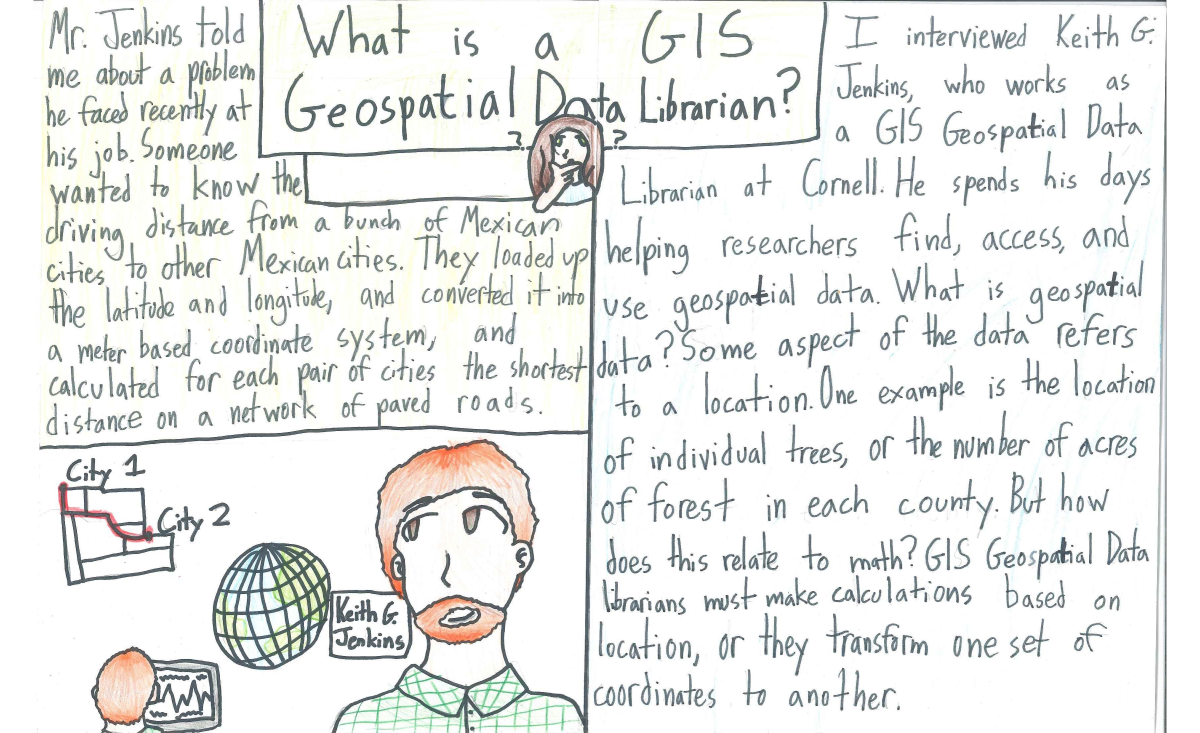 What is a GIS
Geospatial Data Librarian?
? ?
I interviewed Keith G.
Jenkins, who works as
a GIS Geospatial Data
Librarian at Cornell. He spends his days
helping researchers find, access, and
use geospatial data. What is geospatial
data? Some aspect of the data refers
to a location. One example is the location
of individual trees, or the number of acres
of forest in each county. But how
does this relate to math? GIS Geospatial Data
librarians must make calculations based on
location, or they transform one set of
coordinates to another.
Mr. Jenkins told
me about a problem
he faced recently at
his job. Someone
wanted to know the
driving distance from a bunch of Mexican
cities to other Mexican cities. They loaded up
the latitude and longitude, and converted it into
a meter based coordinate system, and
calculated for each pair of cities the shortest
distance on a network of paved roads.
City 1
City 2
Keith G.
Jenkins